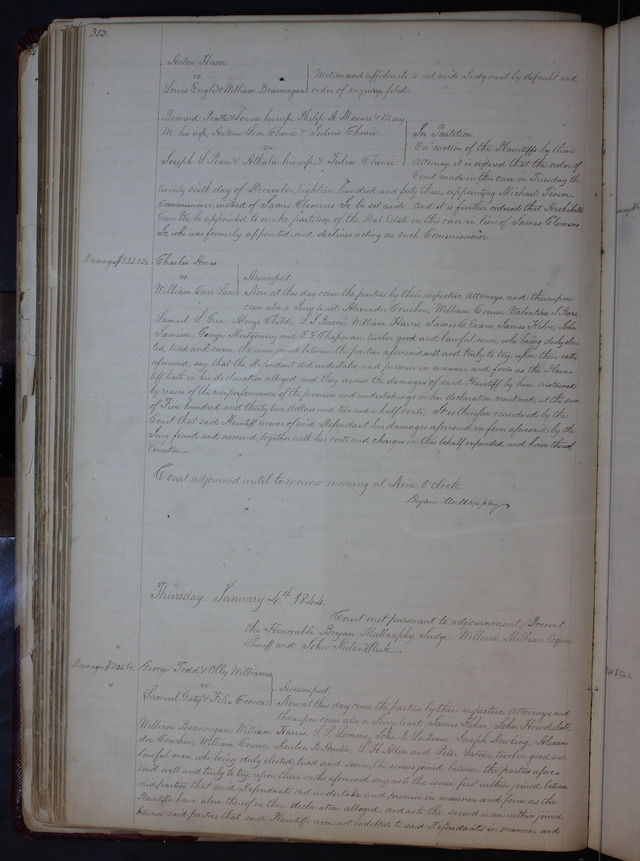 312
vs
Louis Engle & William Brannagan
Motion and affidavits to set aside Judgment by default and
order of enquiry, filed.
Bernard Pratte & Louise his wife, Philip A.
M. his wife, Antoine Leon Chenie & Julien Chenie
vs
Joseph S. Pease & Athalie his wife, & Julia Chenie
In Partition.
On motion of the Plaintiffs by their
Attorney, it is ordered that the order of
Court made in this case on Tuesday the
twenty sixth day of December Eighteen hundred and forty three, appointing Michael Tesson
Commissioner instead of James Clemens Jr. be set aside, and it is further ordered that Archibald
Gamble be appointed to make partition of the Real Estate in this case in lieu of James Clemens
Jr. who was formerly appointed and declines acting as such Commissioner.
Damages $532.02½
Charles Ames
vs
William Carr Lane
Assumpsit
Now at this day come the parties by their respective Attorneys, and thereupon
come also a Jury to wit, Alexander William Valentine J.
Samuel S. Alonzo Childs, William Harris, James Evans, James Fehoe, John
George Montgomery and Chapman, twelve good and lawful men, who being duly elec-
ted, tried and sworn the issue joined between the parties aforesaid well and truly to try, upon their oaths
aforesaid, say that the Defendant did undertake and promise in manner and form as the Plain-
tiff hath in his declaration alleged, and they assess the damages of said Plaintiff by him sustained
by reason of the nonperformance of the promises and undertakings in his declaration mentioned, at the sum
of Five hundred and thirty two dollars and two and a half cents. It is therefore considered by the
Court that said Plaintiff recover of said Defendant his damages aforesaid in form aforesaid by the
Jury found and assessed, together with his costs and charges in this behalf expended and have thereof
Execution.
Court adjourned until to morrow morning at Nine O'clock.
Bryan Mullanphy
Thursday January 4th 1844.
Court met pursuant to adjournment, Present
the Honorable Bryan Mullanphy Judge. William Milburn Esquire
Sheriff and John Ruland Clerk.
Damages
George Todd & Olly Williams
vs
Samuel Gaty & Felix Coonce
Assumpsit
Now at this day come the parties by their respective Attorneys and
thereupon come also a Jury to wit: James Fehoe, John
William Brannagan, William Harris, John B. Joseph Dowling, Alexan-
der William Reuben B. L. H. Allen and Peter twelve good and
lawful men who being duly elected, tried and sworn, the issues joined between the parties afore-
said well and truly to try, upon their oaths aforesaid say as to the issue first within joined between
said parties, that said Defendants did undertake and promise in manner and form as the
Plaintiffs have above thereof in their declaration alleged, and as to the second issue within joined
between said parties that said Plaintiffs were not indebted to said Defendants in manner and